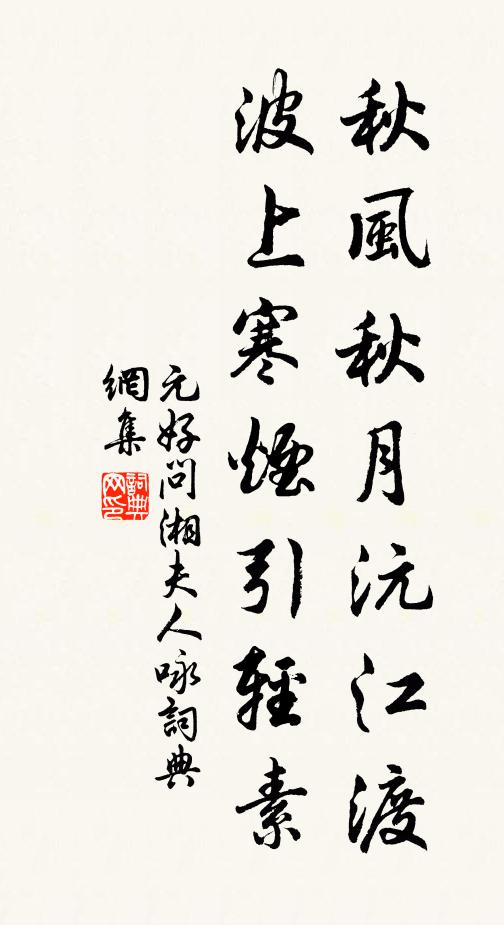 秋風秋月沅江渡
波上寒煙引輕素
元好問湘夫人咏詞典
網集
詞典
网印